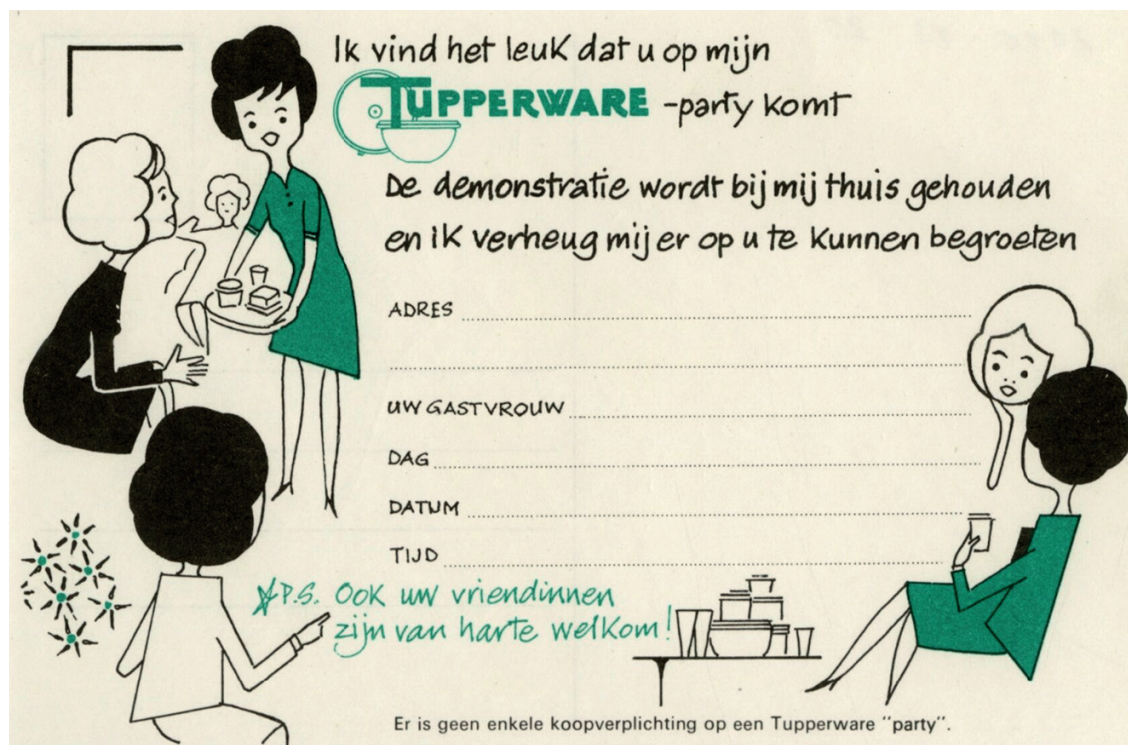 Ik vind het leuk dat u op mijn
TUPPERWARE -party komt
De demonstratie wordt bij mij thuis gehouden
en ik verheug mij er op u te kunnen begroeten
ADRES
UW GASTVROUW
DAG
DATUM
TIJD
P.S. Ook uw vriendinnen
zijn van harte welkom!
Er is geen enkele koopverplichting op een Tupperware "party".